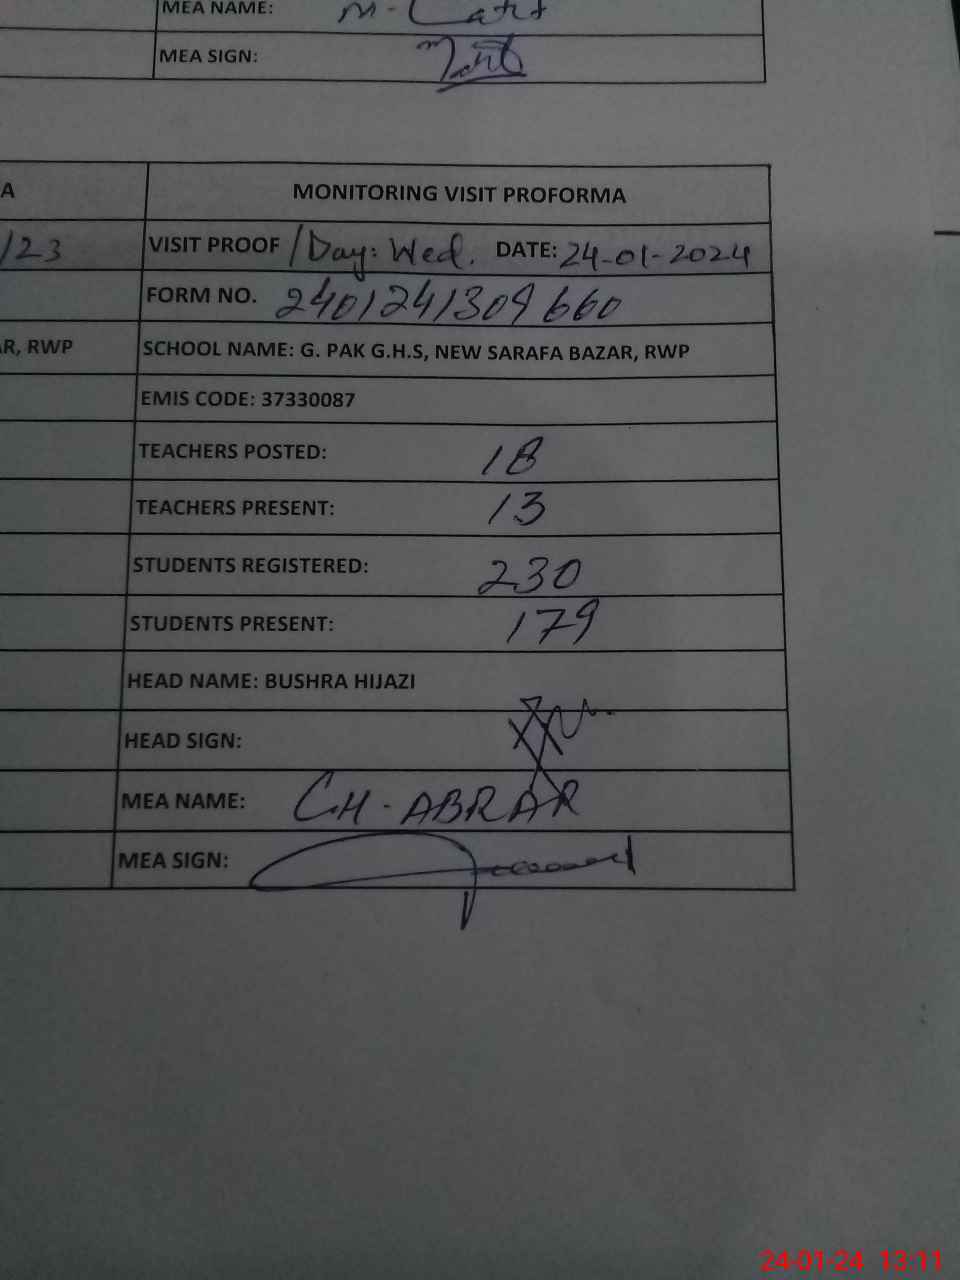 MEA NAME: M- Latif
MEA SIGN:
A
MONITORING VISIT PROFORMA
/23
VISIT PROOF / Day: Wed. DATE: 24-01-2024
FORM NO. 2401241309660
R, RWP
SCHOOL NAME: G. PAK G.H.S, NEW SARAFA BAZAR, RWP
EMIS CODE: 37330087
TEACHERS POSTED: 18
TEACHERS PRESENT: 13
STUDENTS REGISTERED: 230
STUDENTS PRESENT: 179
HEAD NAME: BUSHRA HIJAZI
HEAD SIGN:
MEA NAME: CH - ABRAR
MEA SIGN:
24-01-24 13:11